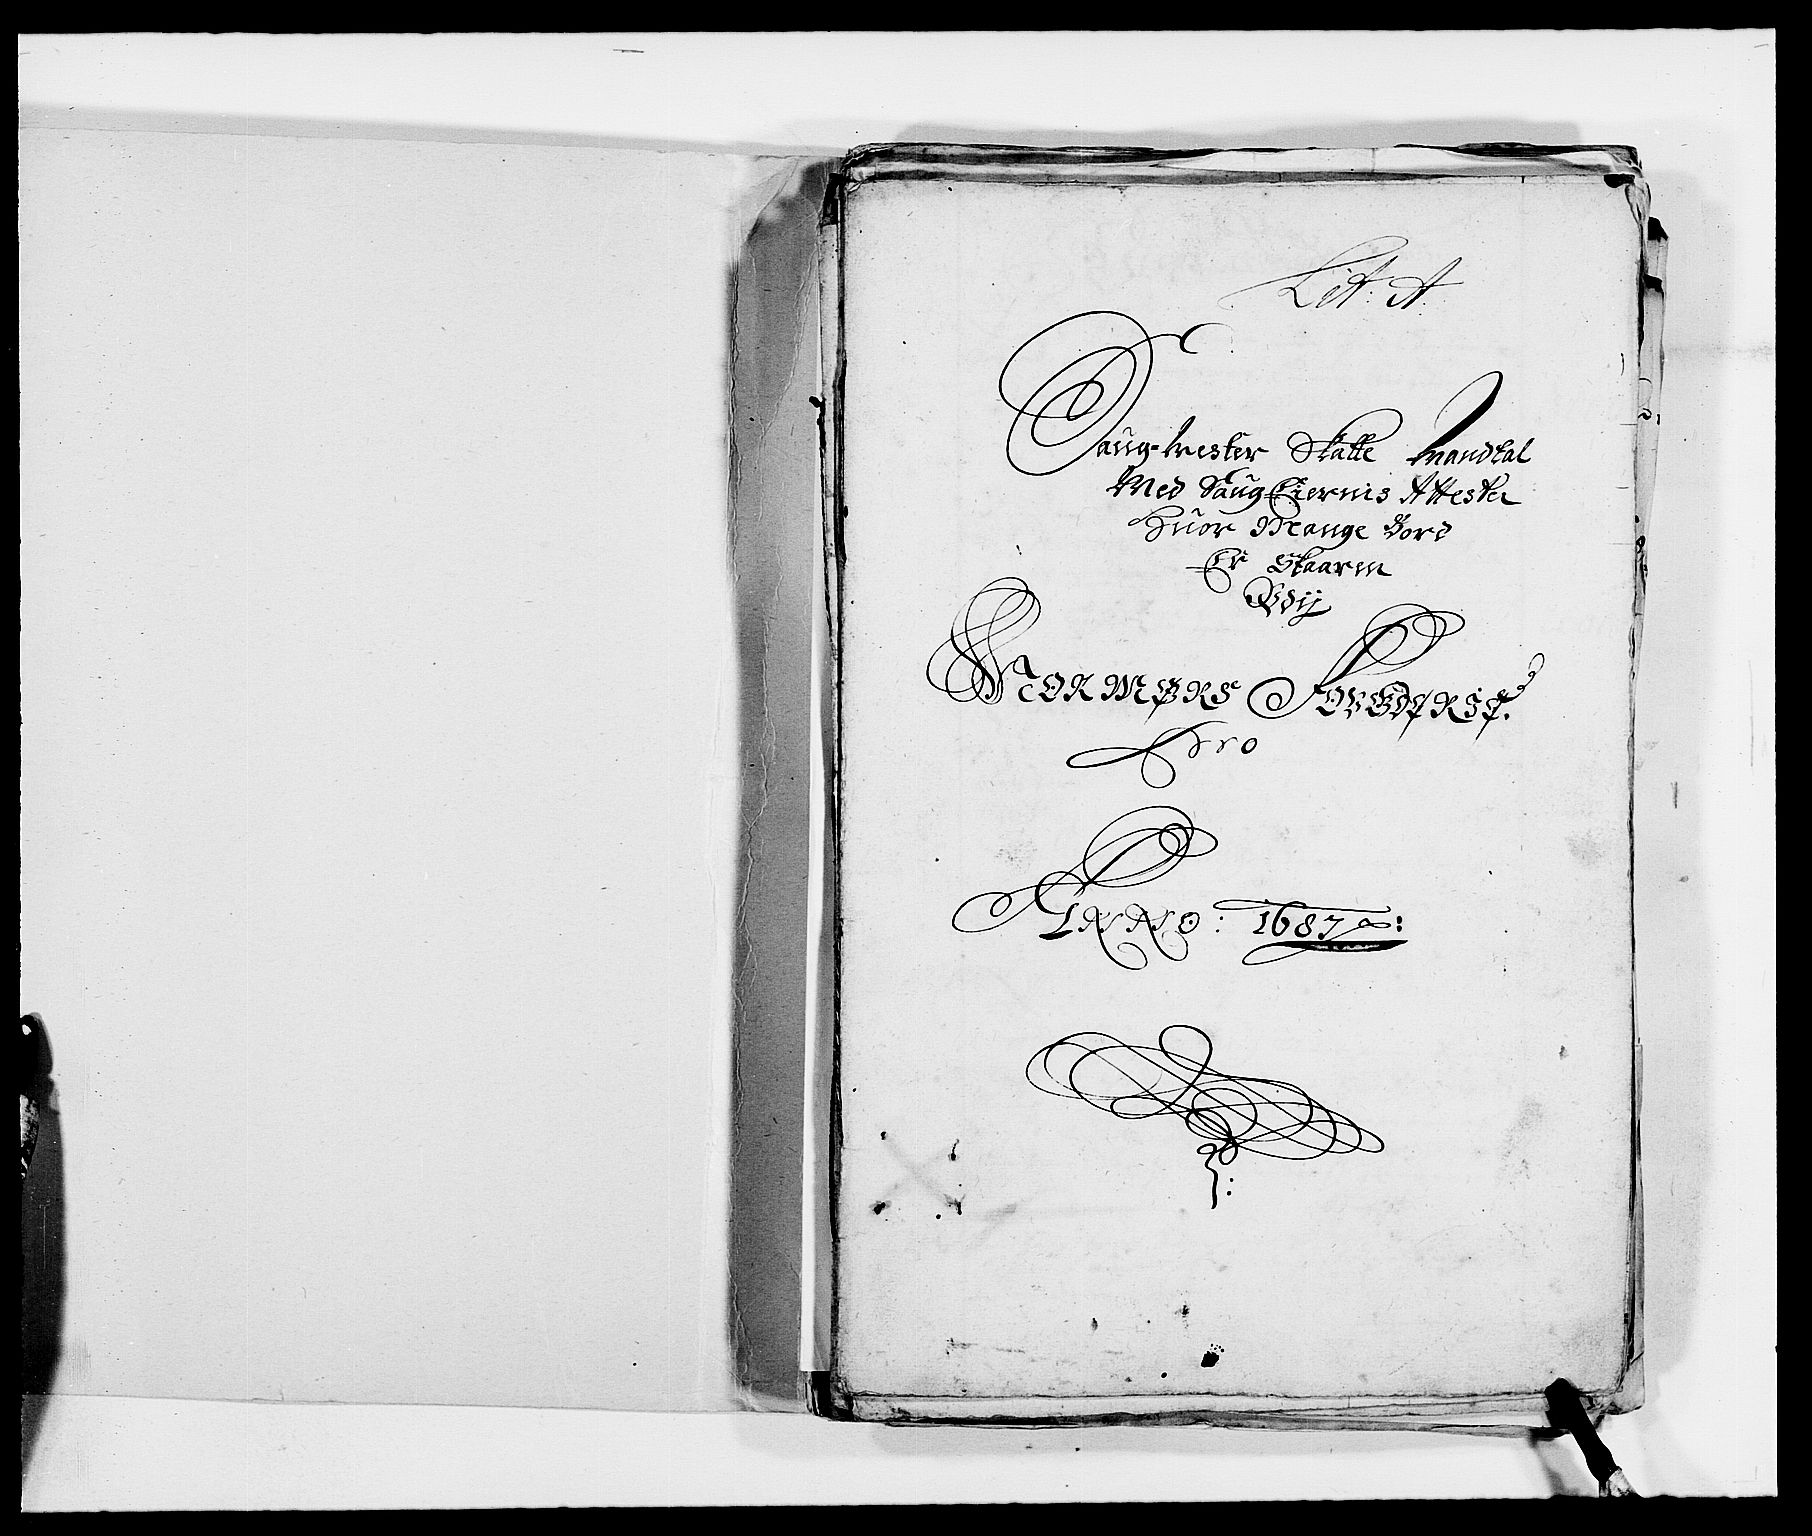 Lit: A:
Saug-Mester Skatte Mandtal
Med Saug Eiernis Attester
Huor Mange Bord
Er Skaaren
Udij
Normørs Fogderie.
Pro
Anno: 1687: